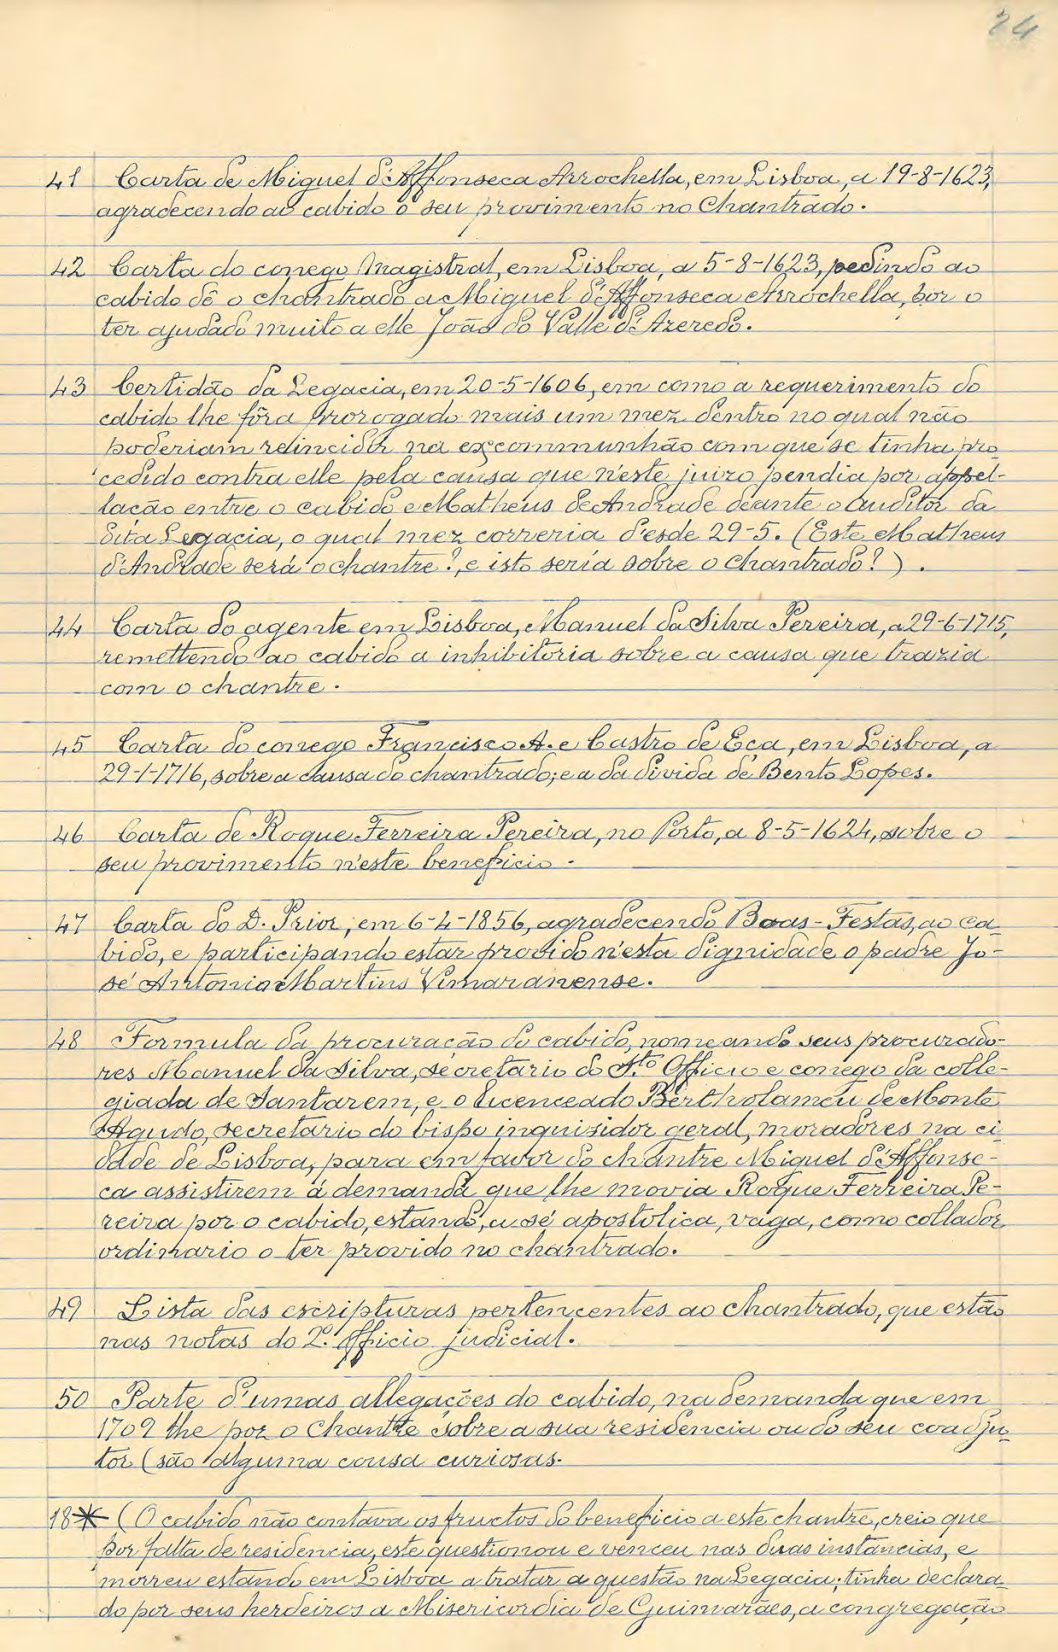 24
41 Carta de Miguel d'Affonseca Arrochella, em Lisboa, a 19-8-1623,
agradecendo ao cabido o seu provimento no Chantrado.
42 Carta do conego Magistral, em Lisboa, a 5-8-1623, pedindo ao
cabido dê o chantrado a Miguel d'Affonseca Arrochella, por o
ter ajudado muito a elle João do Valle d'Azeredo.
43 Certidão da Legacia, em 20-5-1606, em como a requerimento do
cabido lhe fôra prorogado mais um mez dentro no qual não
poderiam relincidir na excommunhão com que se tinha pro-
cedido contra elle pela causa que n'este juizo pendia por appel-
lação entre o cabido e Matheus de Andrade deante o auditor da
dita Legacia, o qual mez correria d'esde 29-5. (Este Matheus
d'Andrade será o chantre?, e isto seria sobre o chantrado?).
44 Carta do agente em Lisboa, Manuel da Silva Pereira, a 29-6-1715,
remettendo ao cabido a inhibitoria sobre a causa que trazia
com o chantre.
45 Carta do conego Francisco A. e Castro de Eça, em Lisboa, a
29-1-1716, sobre a causa do chantrado; e a da divida de Bento Lopes.
46 Carta de Roque Ferreira Pereira, no Porto, a 8-5-1624, sobre o
seu provimento n'este beneficio.
47 Carta do D. Prior, em 6-4-1856, agradecendo Boas-Festas, ao ca-
bido, e participando estar provido n'esta dignidade o padre Jo-
sé Antonio Martins Vimaranense.
48 Formula da procuração do cabido, nomeando seus procurado-
res Manuel da Silva, secretario do S.to Officio e conego da colle-
giada de Santarem, e o licenceado Bertholameu de Monte
Agudo, secretario do bispo inquizidor geral, moradores na ci-
dade de Lisboa, para em favor do chantre Miguel d'Affonse-
ca assistirem á demanda que lhe movia Roque Ferreira Pe-
reira por o cabido, estando, a sé apostolica, vaga, como collador
ordinario o ter provido no chantrado.
49 Lista das escripturas pertencentes ao Chantrado, que estão
nas notas do 2.º Officio judicial.
50 Parte d'umas allegações do cabido, na demanda que em
1709 lhe poz o Chantre sobre a sua residencia ou do seu coadju-
tor (são alguma cousa curiosas.
18* (O cabido não contava os fructos do beneficio a este chantre, creio que
por falta de residencia, este questionou e venceu nas duas instancias, e
morreu estando em Lisboa a tratar a questão na Legacia; tinha declara-
do por seus herdeiros a Misericordia de Guimarães, a congregação